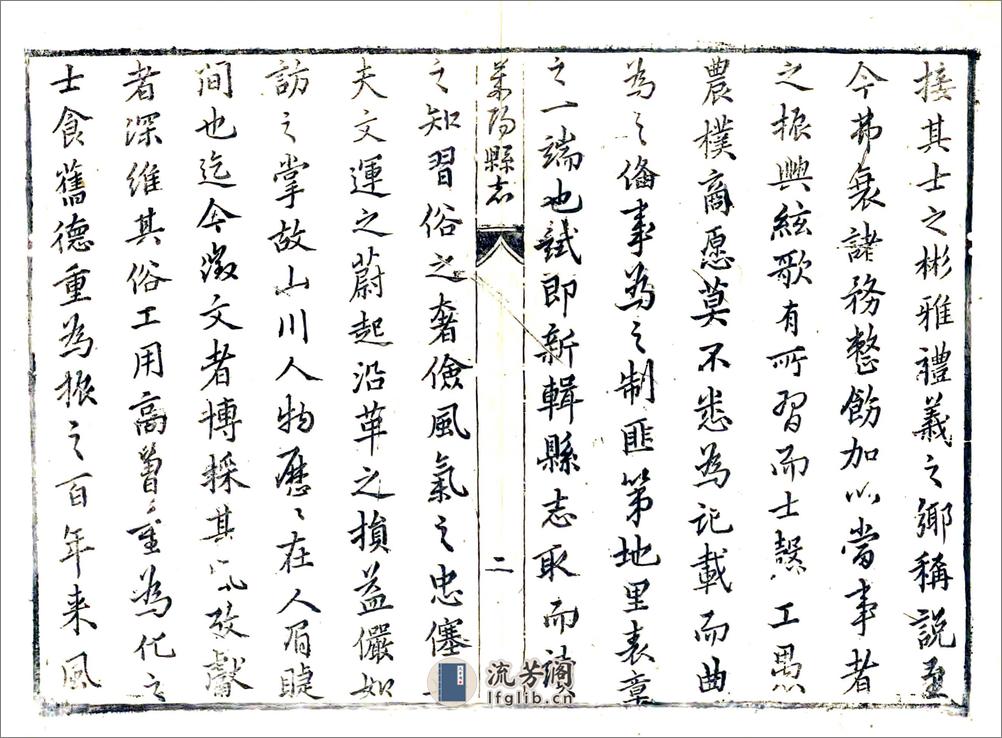 接其士之彬雅禮義之鄉稱說至
今弗衰諸務整飭加以當事者
之振興絃歌有所習而士髦工愚
農樸商愿莫不悉為記載而曲
為之備事為之制匪第地里表章
之一端也試即新輯縣志取而讀
萊陽縣志
二
之知習俗之奢儉風氣之忠
夫文運之蔚起沿革之損益儼如
訪之掌故山川人物歷〻在人眉睫
間也迄今徵文者博採其風攷獻
者深維其俗工用高曾重為化之
士食舊德重為振之百年来風
流芳閣
lfglib.cn